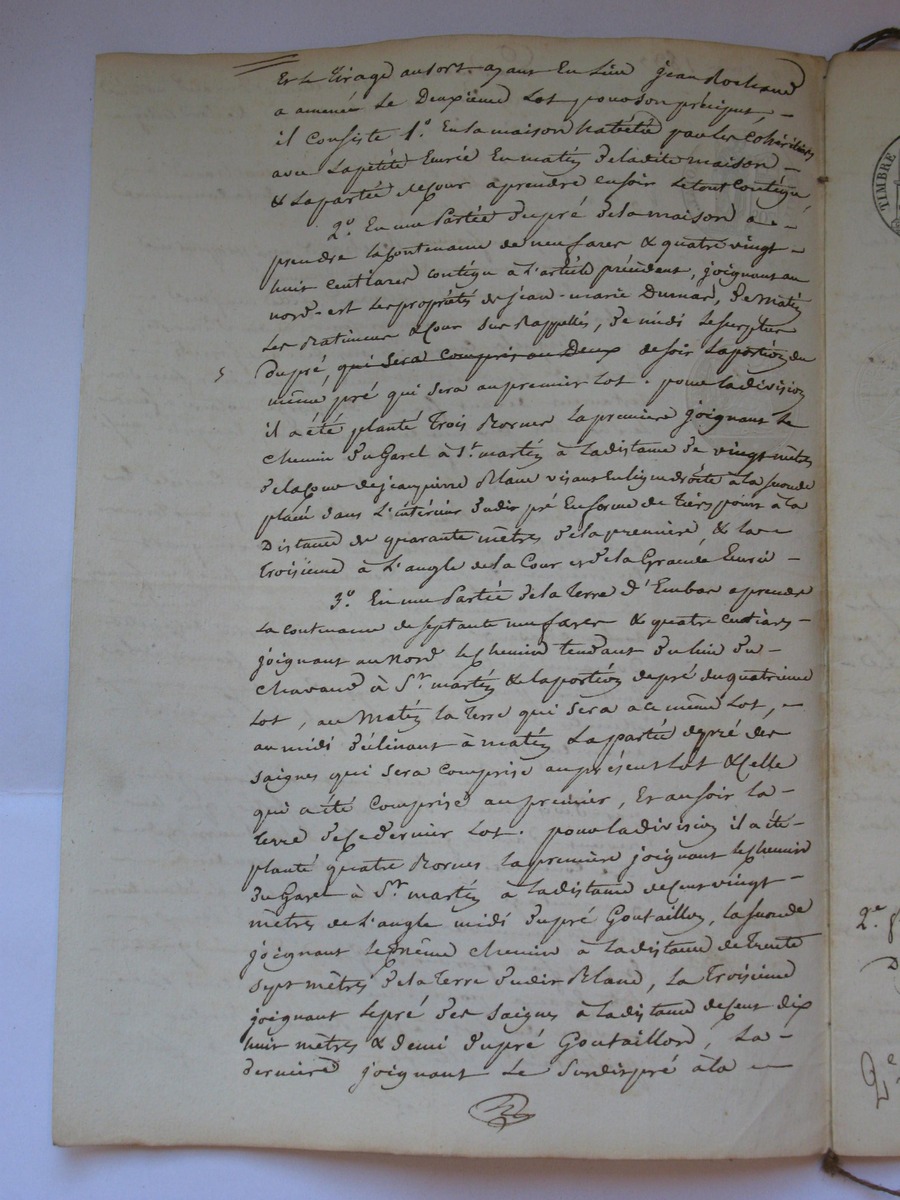 Et le tirage au sort ayant eu lieu jean Rochand
a amené le Deuxième lot pour son préciput, -
il consiste 1.º En la maison habitée par les cohéritiers
avec la petite Ecurie Eu matin de la dite maison -
& la partie de cour a prendre en soir le tout contigu
2.º En une Partie du pré de la maison a -
prendre la contenance de neuf ares & quatre vingt -
huit centiares contigu à l'article précédent, joignant au
nord-est les propriétés de jean-marie Dumas, de matin
les Batiments & cour sus Rappellés, de midi le surplus
du pré, qui sera compris au Deux de soir la portion du
même pré qui sera au premier lot. pour la division
il a été planté Trois Bornes la première joignant le
chemin du Garet à St martin à la distance de vingt mètres
de la cour de jean pierre Blanc visant en ligne droite à la seconde
placée dans l'intérieur dudit pré En forme de Tiers point à la
Distance de quarante mètres de la première, & la -
Troisième à l'angle de la Cour et de la Grande Ecurie -
3.º En une Partie de la Terre d'Embas a prendre
la contenance de septante neuf ares & quatre centiares -
joignant au nord le chemin tendant du lieu du -
Chavand à St martin & la portion de pré du quatrième
lot, au Matin la Terre qui sera a ce même lot, -
au midi déclinant à matin la partie de pré des
saignes qui sera comprise au présent lot & celle
qui a été comprise au premier, Et au soir la -
Terre de ce dernier lot. pour la division il a été -
planté quatre Bornes la première joignant le chemin
du Garet à St martin à la distance de cent vingt -
mètres de l'angle midi du pré Goutaillon, la seconde
joignant le même chemin à la distance de Trente
sept mètres de la Terre dudit Blanc, la Troisième
joignant le pré des saignes à la distance de cent dix
huit mètres & demi du pré Goutaillon, la -
dernière joignant le susdit pré à la -
TIMBRE
2.e